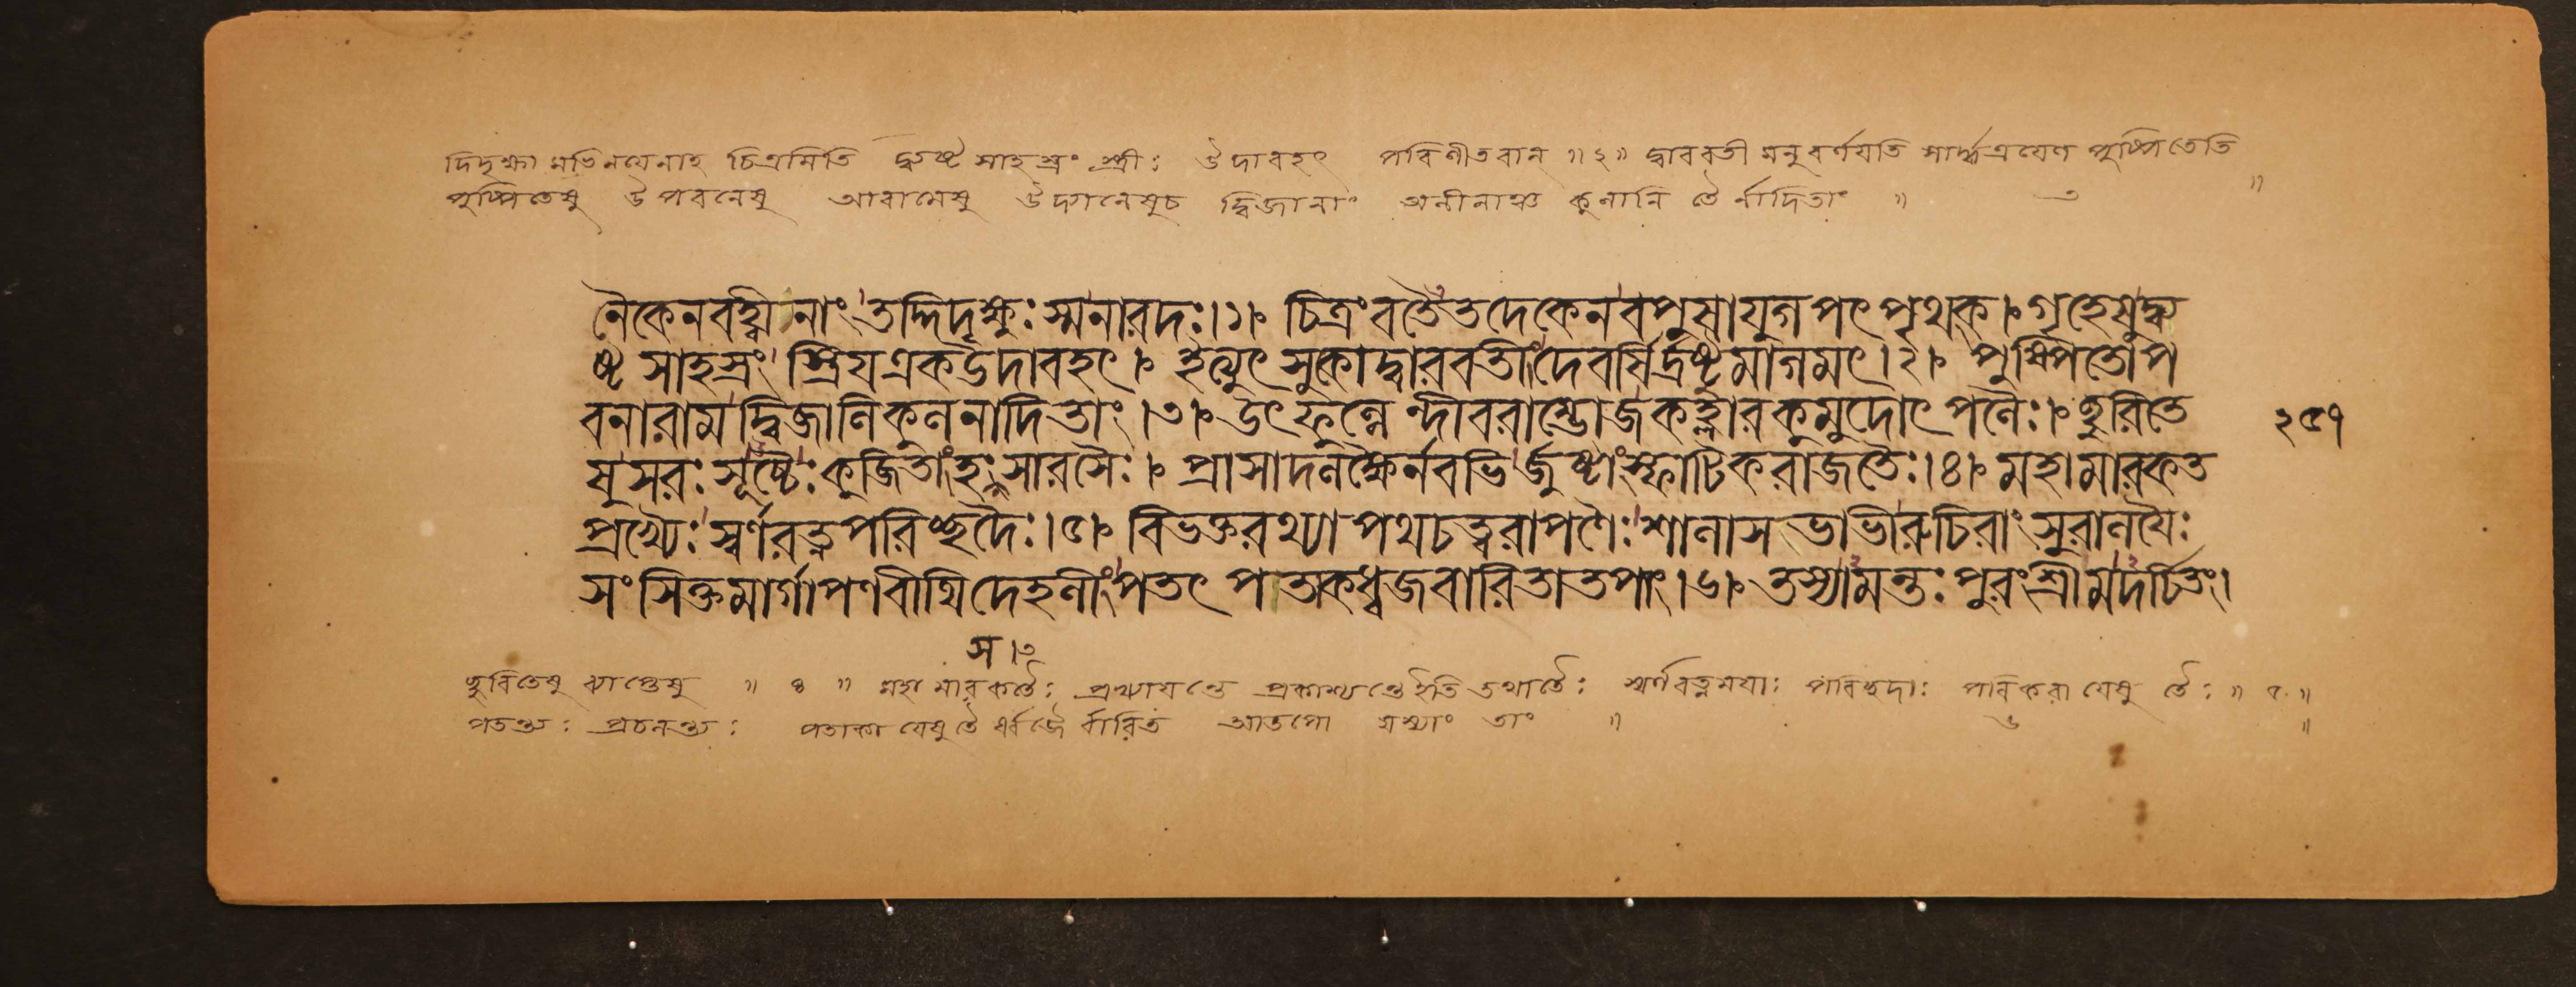 দিদৃক্ষামভিনয়েনাহ চিত্রমিতি দ্ব্যষ্ট সাহস্রং স্ত্রীঃ উদাবহৎ পরিণীতবান্ ॥ ২ ॥ দ্বারবতী মনুবর্ণয়তি সার্দ্ধত্রয়েণ পুষ্পিতেতি
পুষ্পিতেষু উপবনেষু আরামেষু উদ্যানেষুচ দ্বিজানাং অলীনাঞ্চ কুলানি তৈ র্নাদিতাং ॥ ৩ ॥
নৈকেনবহ্বীনাং তদ্দিদৃক্ষুঃ স্মনারদঃ।১। চিত্রংবতৈতদেকেনবপুষাযুগপৎ পৃথক্। গৃহেষুদ্ব্য
ষ্ট সাহস্রং স্ত্রিয়একউদাবহৎ। ইত্যুৎসুকোদ্বারবতীংদেবর্ষির্দ্রষ্টুমাগমৎ।২। পুষ্পিতোপ
বনারামদ্বিজালিকুলনাদিতাং।৩। উৎফুল্লেন্দীবরাম্ভোজকহ্লারকুমুদোৎপলৈঃ। ছুরিতে
ষুসরঃসূচ্চৈঃকূজিতাংহংসসারসৈঃ। প্রাসাদলক্ষৈর্নবভির্জুষ্টাংস্ফাটিকরাজতৈঃ।৪। মহামারকত
প্রখ্যৈঃস্বর্ণরত্নপরিচ্ছদৈঃ।৫। বিভক্তরথ্যাপথচত্বরাপণৈঃশালাসভাভীরুচিরাংসুরালয়ৈঃ
সংসিক্তমার্গাপণবীথিদেহলীংপতৎপতাকধ্বজবারিতাতপাং।৬। তস্যামন্তঃপুরংশ্রীমদর্চিতং।
২৫৭
স।৩
ছুরিতেষু ব্যাপ্তেষু ॥ ৪ ॥ মহামারকতৈঃ প্রখ্যায়ন্তে প্রকাশ্যন্তেইতি তথাতৈঃ স্বর্ণরত্নময়াঃ পরিচ্ছদাঃ পরিকরা যেষু তৈঃ ॥ ৫ ॥
পতন্ত্যঃ প্রচলন্ত্যঃ পতাকা যেষুতৈ র্ধ্বজৈ র্বারিত আতপো যস্যাং তাং ॥ ৬ ॥